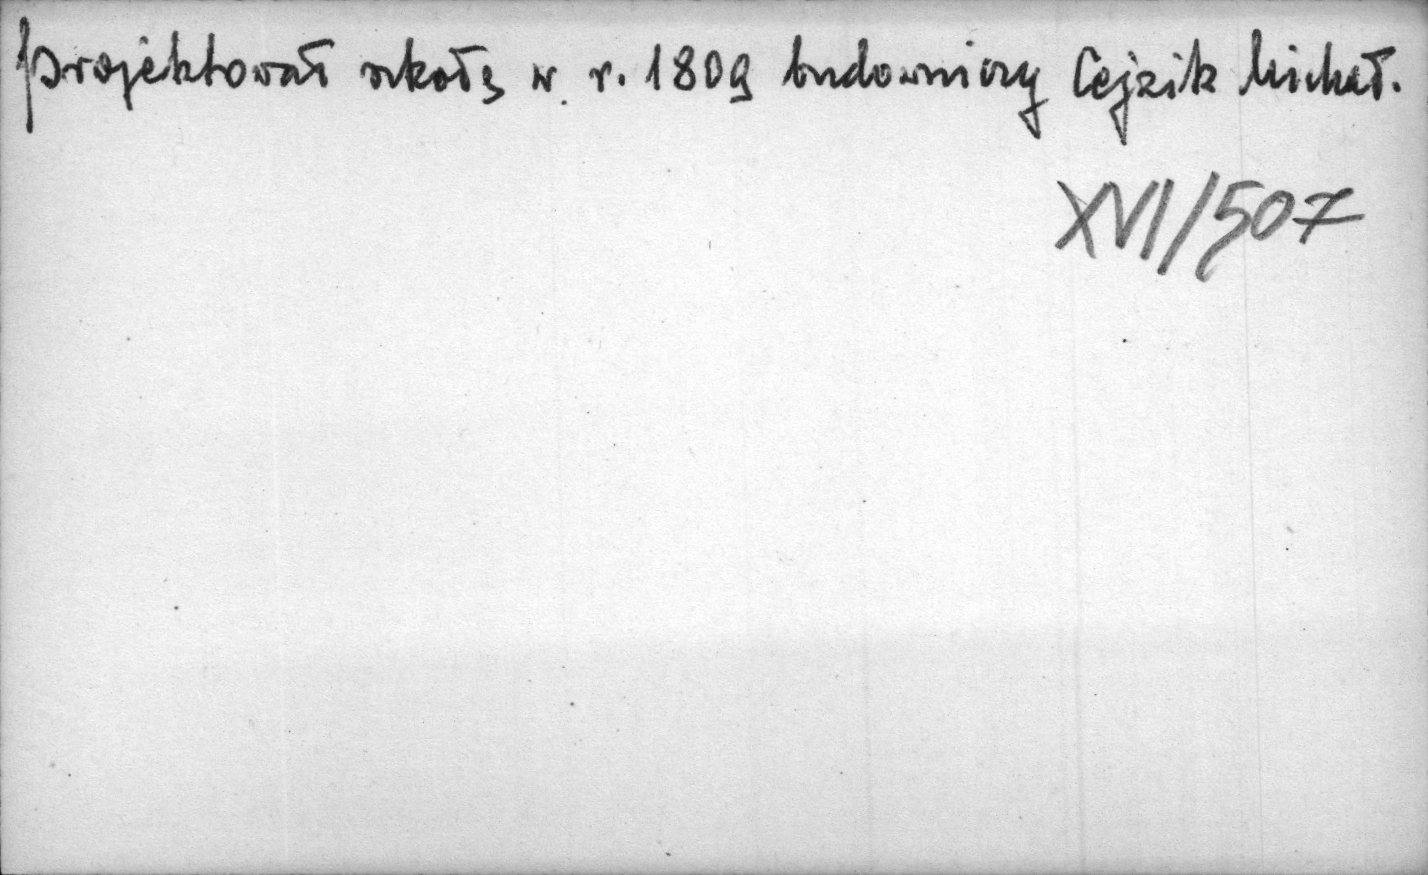 projektował szkołę w r. 1809 budowniczy Cejzik Michał.
XVI/507